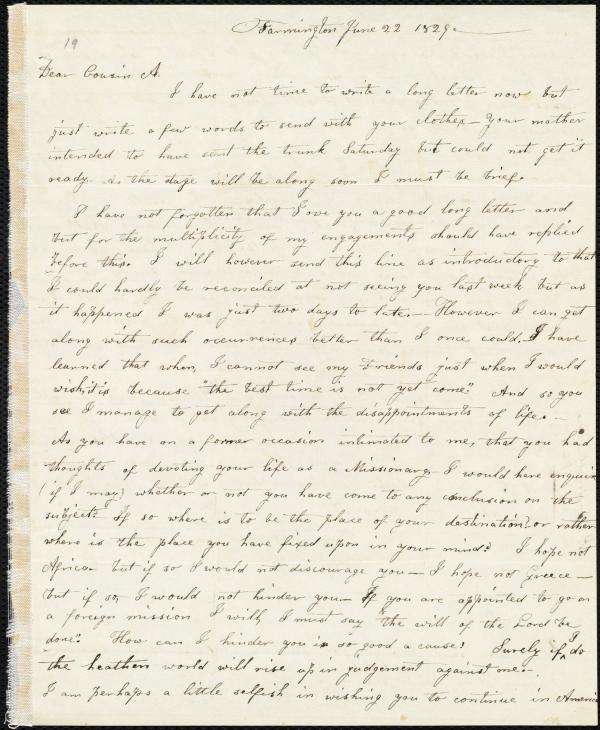 Farmington June 22 1829.
19
Dear Cousin A.
I have not time to write a long letter now but
just write a few words to send with your clothes— Your mother
intended to have sent the trunk Saturday but could not get it
ready. As the stage will be along soon I must be brief.
I have not forgotten that I owe you a good long letter and
but for the multiplicity of my engagements should have replied
before this. I will however send this line as introductory to that
I could hardly be reconciled at not seeing you last week but as
it happened I was just two days to late.— However I can get
along with such occurrences better than I once could. I have
learned that when I cannot see my Friends just when I would
wish, it is because "the best time is not yet come." And so you
see I manage to get along with the disappointments of life.—
As you have on a former occasion intimated to me, that you had
thoughts of devoting your life as a Missionary I would here enquire
(if I may) whether or not you have come to any conclusion on the
subject? If so where is to be the place of your destination? or rather
where is the place you have fixed upon in your mind? I hope not
Africa— but if so I would not discourage you— I hope not Greece—
but if so, I would not hinder you— If you are appointed to go on
a foreign mission I will, I must say "the will of the Lord be
done". How can I hinder you in so good a cause! Surely if I do
the heathen world will rise up in judgement against me.—
I am perhaps a little selfish in wishing you to continue in America